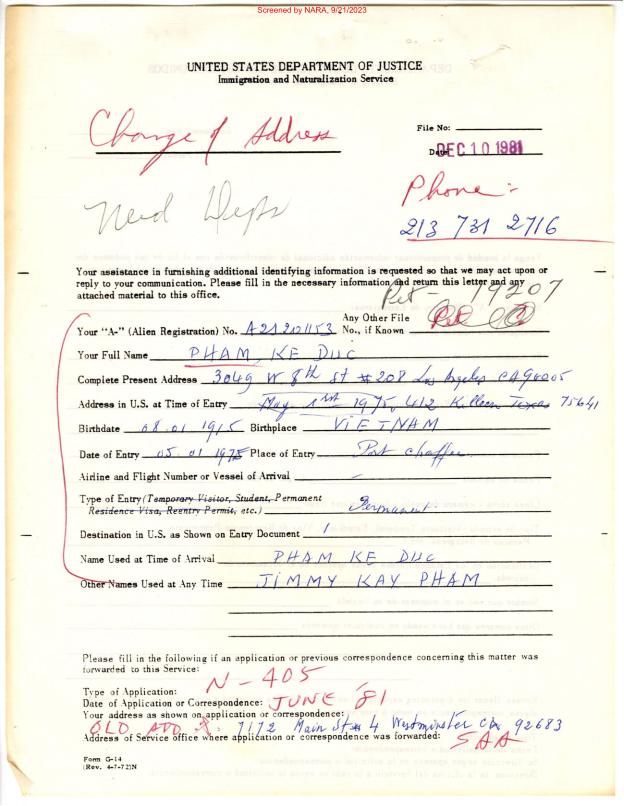 Screened by NARA, 9/21/2023
UNITED STATES DEPARTMENT OF JUSTICE
Immigration and Naturalization Service
Change of Address
File No:
Date DEC 10 1981
Need Deps
Phone:-
213 731 2716
Your assistance in furnishing additional identifying information is requested so that we may act upon or
reply to your communication. Please fill in the necessary information and return this letter and any
attached material to this office.
Pet- 19207
Any Other File
Your "A-" (Alien Registration) No. A212201153 No., if Known
Your Full Name PHAM, KE DUC
Complete Present Address 3049 W 8th St #208 Los Angeles CA 90005
Address in U.S. at Time of Entry May 1st 1975, 412 Killeen Texas 75641
Birthdate 08.01 1915 Birthplace VIETNAM
Date of Entry 05.01 1975 Place of Entry Port chaffee
Airline and Flight Number or Vessel of Arrival -
Type of Entry (Temporary Visitor, Student, Permanent
Residence Visa, Reentry Permit, etc.) Permanent
Destination in U.S. as Shown on Entry Document /
Name Used at Time of Arrival PHAM KE DUC
Other Names Used at Any Time JIMMY KAY PHAM
Please fill in the following if an application or previous correspondence concerning this matter was
forwarded to this Service:
Type of Application: N-405
Date of Application or Correspondence: JUNE '81
Your address as shown on application or correspondence:
OLD ADD R: 7172 Main St # 4 Westminster CA 92683
Address of Service office where application or correspondence was forwarded: SAA
Form G-14
(Rev. 4-7-72)N